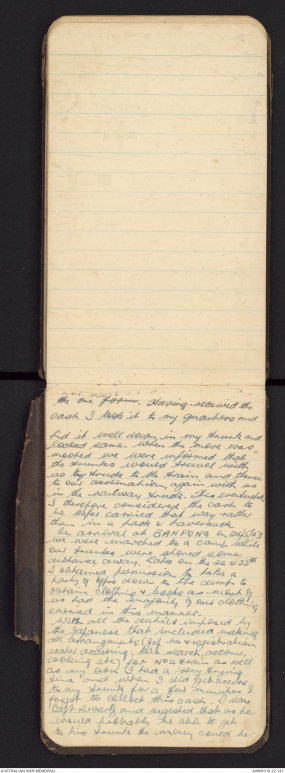 the one prison. Having received the
cash I took it to my quarters and
hid it well down in my trunk and
locked same. When the move was
mooted we were informed that
the trunks would travel with
us by truck to the train and thence
to our destination, again with us
in the railway truck. This eventuated
I therefore considered the cash to
be safer carried that way rather
than in a pack & haversack
On arrival at BANPONG on
we were marched to a camp while
our trunks were stored some
distance away. Late on the 24 & 25th
I obtained permission to take a
party of offrs down to the dump to
obtain clothing & books as most of
us had the majority of our clothing
carried in this manner.
With all the duties imposed by
the Japanese that included making
all arrangements (for registration
water drawing, search, accom,
cooking etc) for No 4 train as well
as my own I had a very trying
time and when I did get access
to my trunk for a few minutes I
forgot to collect this cash. I saw
Capt and suggested that as he
would probably be able to get
to his trunk the money could be
AUSTRALIAN WAR MEMORIAL